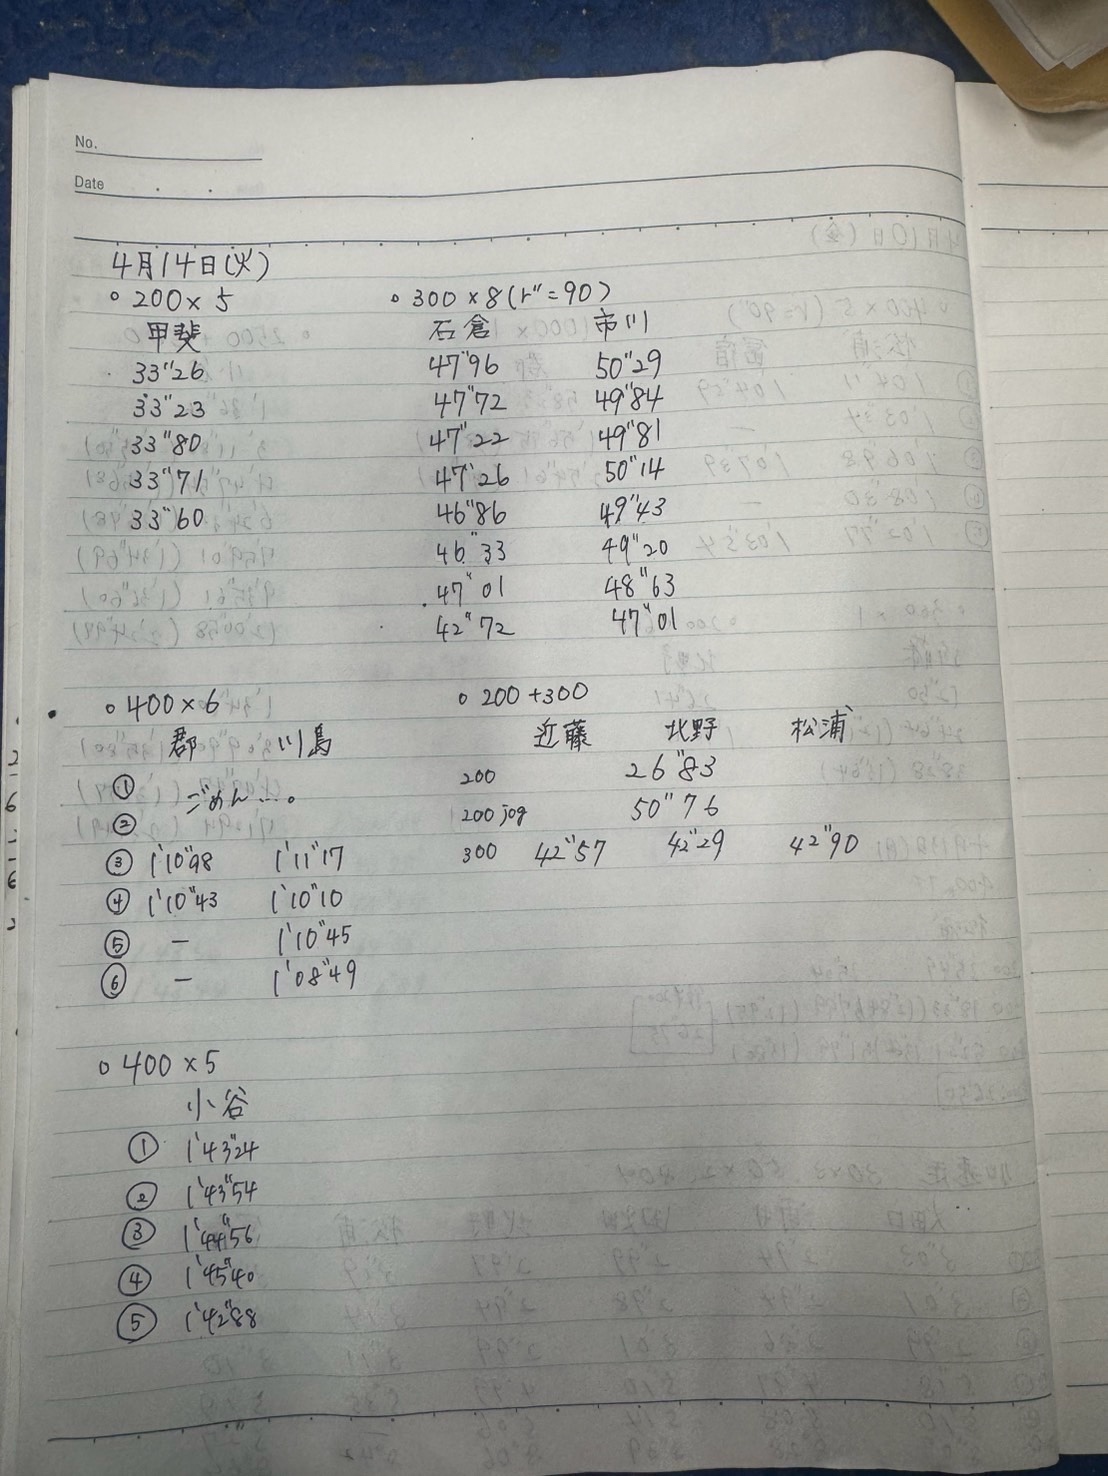 No.
Date
4月14日(火)
○ 200×5
甲斐
33"26
33"23
33"80
33"71
33"60
○ 300×8(r"=90)
石倉 市川
47"96 50"29
47"72 49"84
47"22 49"81
47"26 50"14
46"86 49"43
46"33 49"20
47"01 48"63
42"72 47"01
○ 400×6
郡 川島
①
ごめん…。
②
③ 1'10"98 1'11"17
④ 1'10"43 1'10"10
⑤ — 1'10"45
⑥ — 1'08"49
○ 200+300
近藤 北野 松浦
200 26"83
200 jog 50"76
300 42"57 42"29 42"90
○ 400×5
小谷
① 1'43"24
② 1'43"54
③ 1'44"56
④ 1'45"40
⑤ 1'42"88